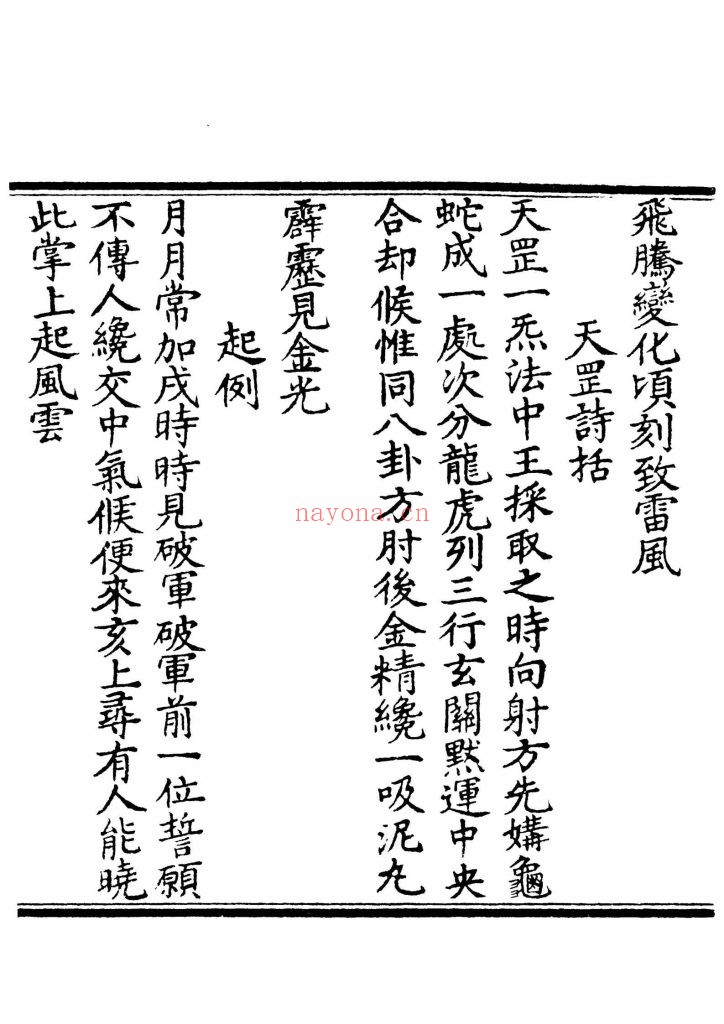 飛騰變化頃刻致雷風
天罡詩括
天罡一炁法中王採取之時向射方先媾龜
蛇成一處次分龍虎列三行玄關默運中央
合却候惟同八卦方肘後金精纔一吸泥丸
霹靂見金光
起例
月月常加戌時時見破軍破軍前一位誓願
不傳人纔交中氣候便來亥上尋有人能曉
此掌上起風雲
nayona.cn